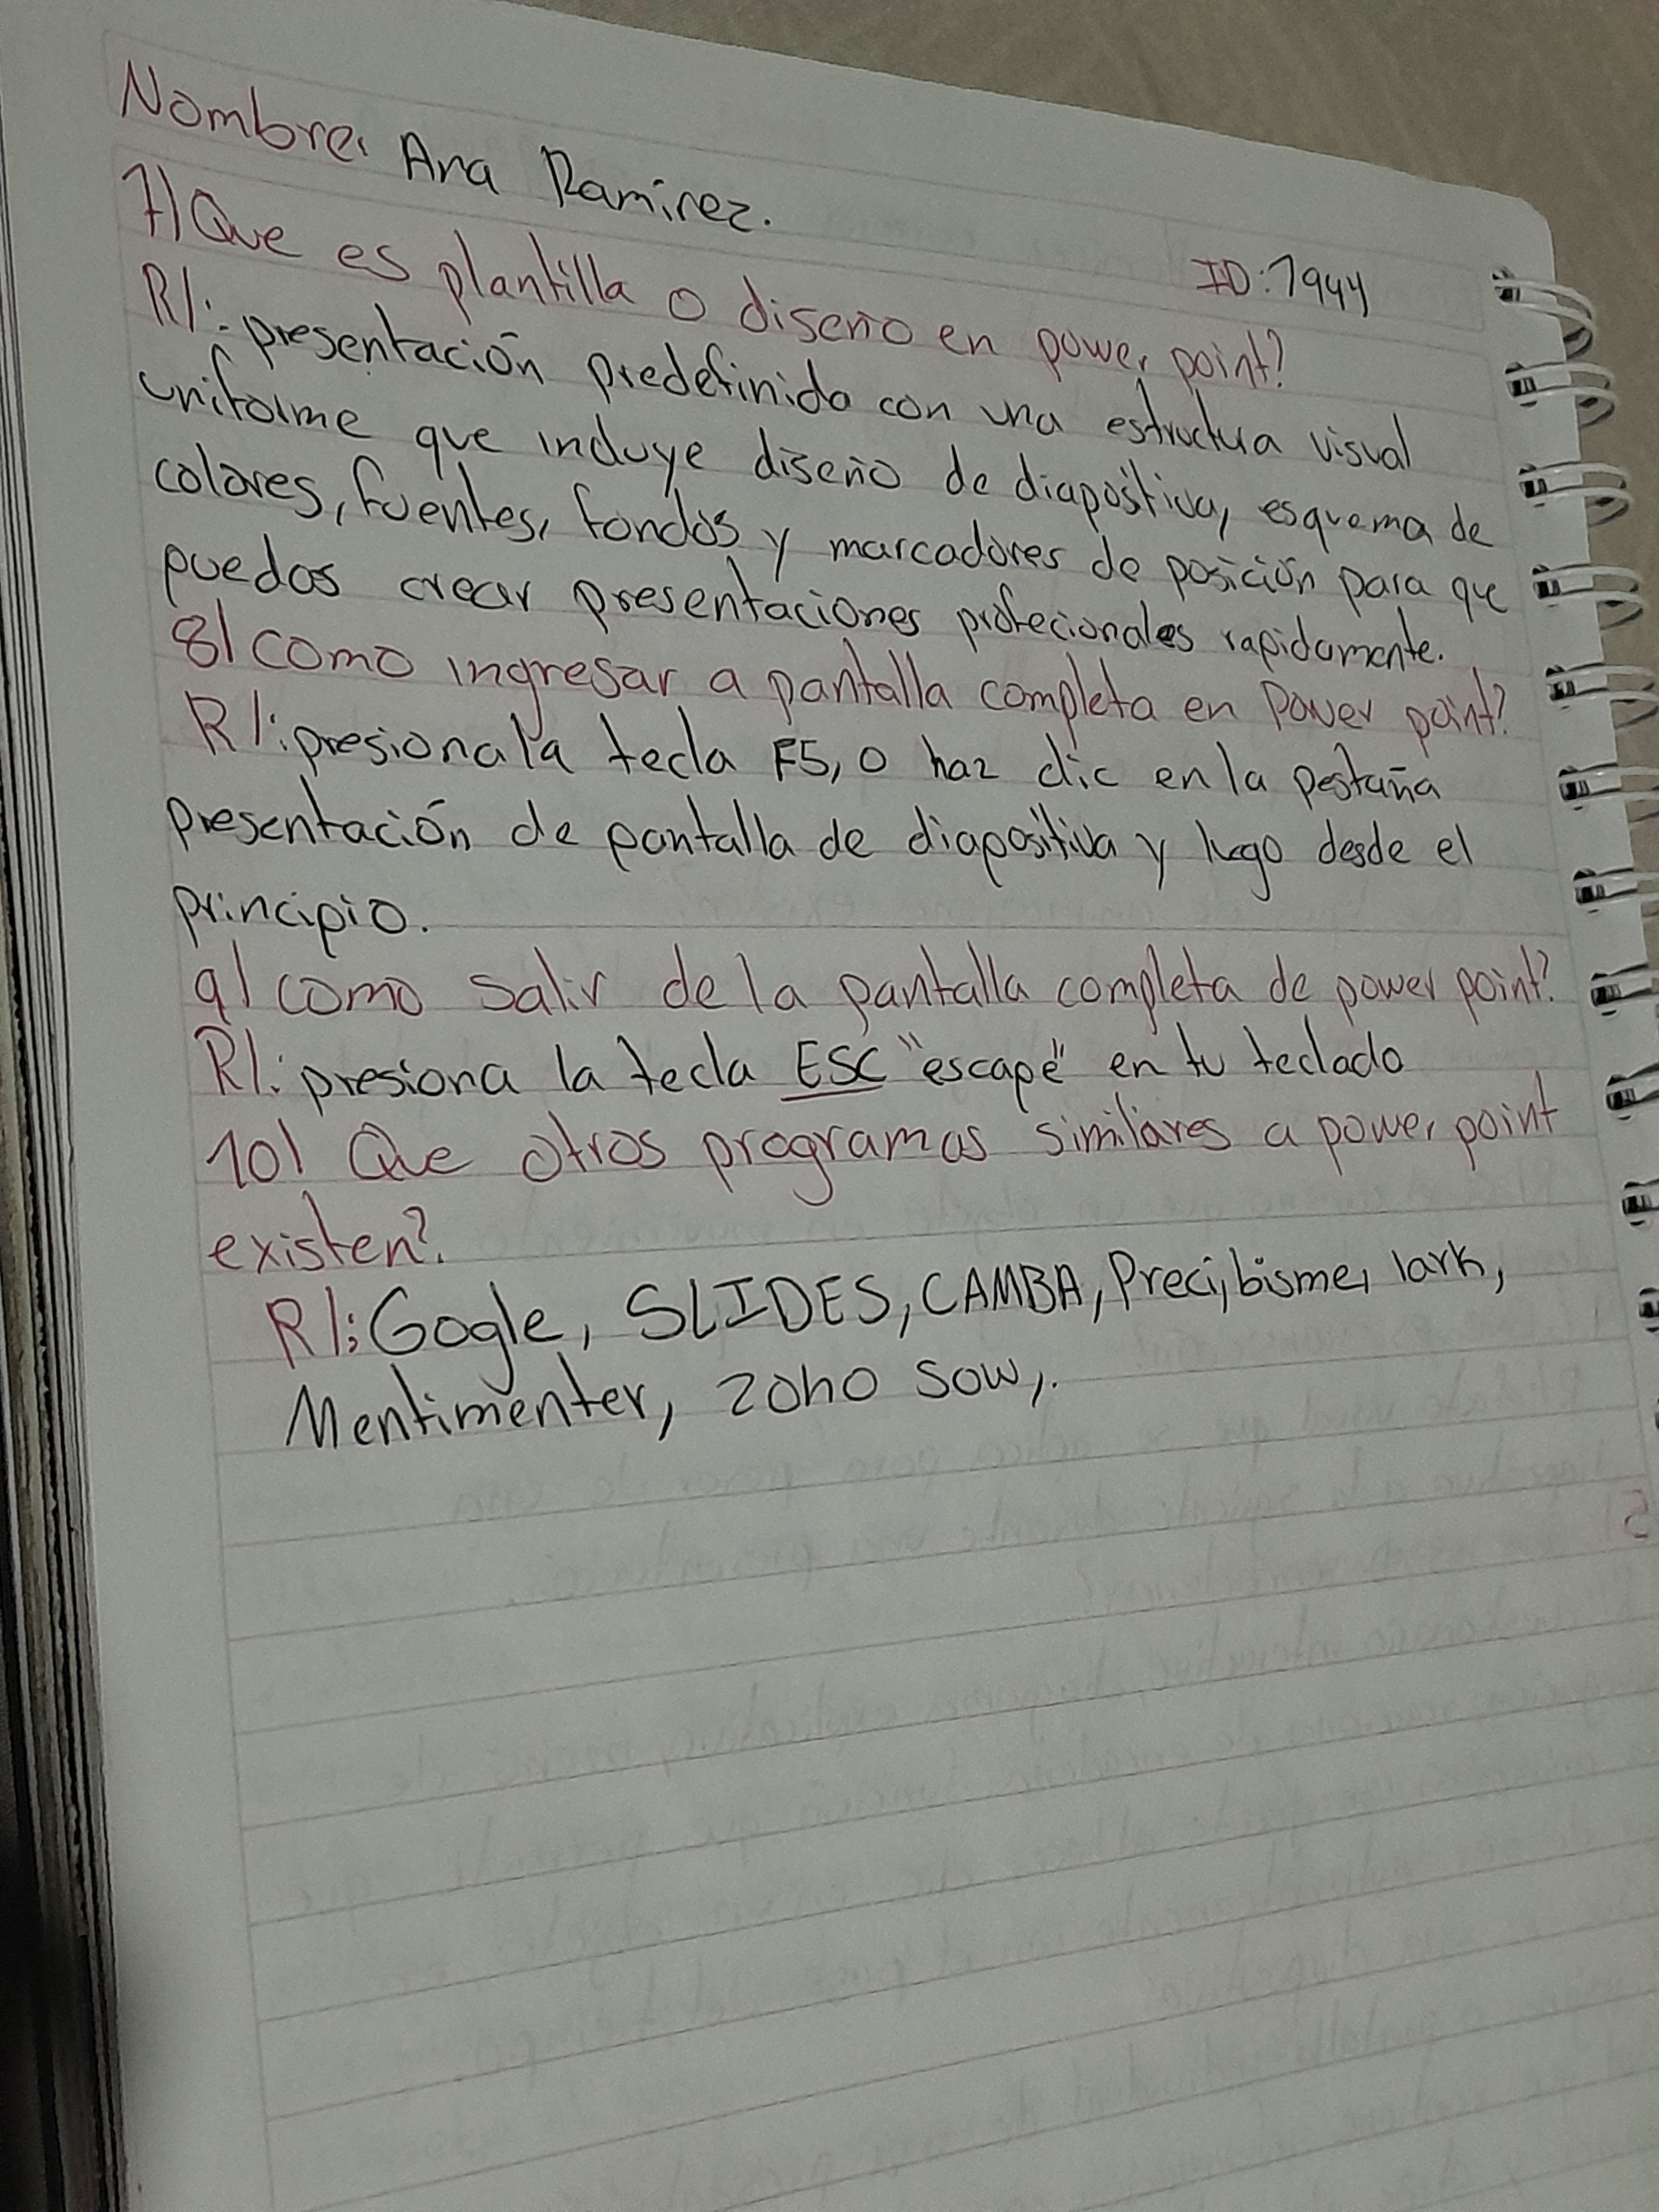 Nombre: Ana Ramirez.
ID: 7944
7) Que es plantilla o diseño en power point?
R/: presentación predefinida con una estructura visual
uniforme que incluye diseño de diapositiva, esquema de
colores, fuentes, fondos y marcadores de posición para que
puedas crear presentaciones profecionales rapidamente.
8) como ingresar a pantalla completa en Power point?
R/: presiona la tecla F5, o haz clic en la pestaña
presentación de pantalla de diapositiva y luego desde el
principio.
9) como salir de la pantalla completa de power point?
R/: presiona la tecla ESC "escape" en tu teclado
10) Que otros programas similares a power point
existen?
R/: Gogle, SLIDES, CAMBA, Preci, bisme, lark,
Mentimenter, zoho sow,.